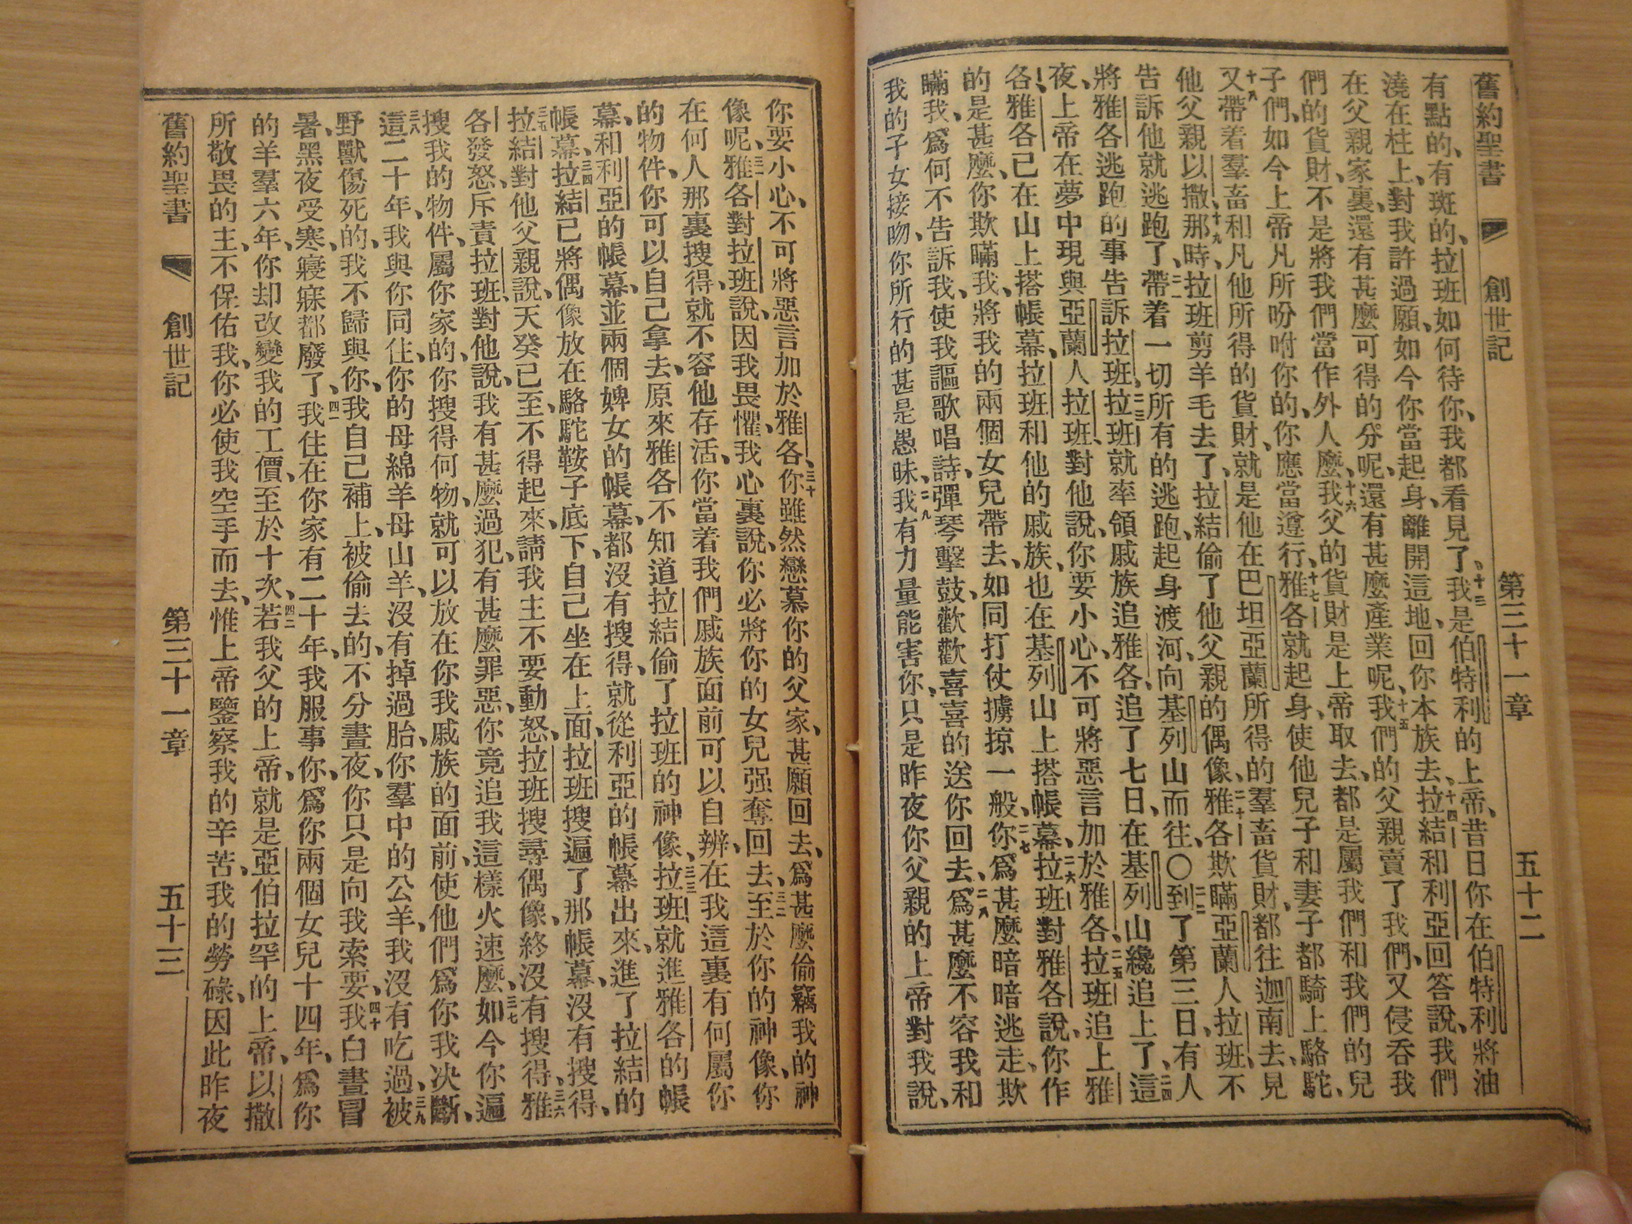 舊約聖書 創世記 第三十一章 五十二
有點的、有斑的、拉班如何待你、我都看見了、十三我是伯特利的上帝、昔日你在伯特利將油
澆在柱上、對我許過願、如今你當起身、離開這地、回你本族去、十四拉結和利亞回答說、我們
在父親家裏、還有甚麼可得的分呢、還有甚麼產業呢、十五我們的父親賣了我們、又侵吞我
們的貨財、不是將我們當作外人麼、十六我父的貨財、是上帝取去、都是屬我們和我們的兒
子們、如今上帝凡所吩咐你的、你應當遵行、十七雅各就起身、使他兒子和妻子都騎上駱駝、
十八又帶着羣畜和凡他所得的貨財、就是他在巴坦亞蘭所得的羣畜貨財、都往迦南去、見
他父親以撒、十九那時拉班剪羊毛去了、拉結偷了他父親的偶像、二十雅各欺瞞亞蘭人拉班、不
告訴他就逃跑了、二一帶着一切所有的逃跑、起身渡河、向基列山而往、〇二二到了第三日、有人
將雅各逃跑的事告訴拉班、二三拉班就率領戚族追雅各、追了七日、在基列山纔追上了、二四這
夜、上帝在夢中現與亞蘭人拉班、對他說、你要小心、不可將惡言加於雅各、二五拉班追上雅
各、雅各已在山上搭帳幕、拉班和他的戚族、也在基列山上搭帳幕、二六拉班對雅各說、你作
的是甚麼、你欺瞞我、將我的兩個女兒帶去、如同打仗擄掠一般、二七你爲甚麼暗暗逃走、欺
瞞我、爲何不告訴我、使我謳歌唱詩、彈琴擊鼓、歡歡喜喜的送你回去、二八爲甚麼不容我和
我的子女接吻、你所行的甚是愚昧、二九我有力量能害你、只是昨夜你父親的上帝對我說、
你要小心、不可將惡言加於雅各、三十你雖然戀慕你的父家、甚願回去、爲甚麼偷竊我的神
像呢、三一雅各對拉班說、因我畏懼、我心裏說、你必將你的女兒强奪回去、三二至於你的神像、你
在何人那裏搜得、就不容他存活、你當着我們戚族面前、可以自辨、在我這裏有何屬你
的物件、你可以自己拿去、原來雅各不知道拉結偷了拉班的神像、三三拉班就進雅各的帳
幕、和利亞的帳幕、並兩個婢女的帳幕、都沒有搜得、就從利亞的帳幕出來、進了拉結的
帳幕、三四拉結已將偶像放在駱駝鞍子底下、自己坐在上面、拉班搜遍了那帳幕、沒有搜得、
三五拉結對他父親說、天癸已至、不得起來、請我主不要動怒、拉班搜尋偶像、終沒有搜得、三六雅
各發怒、斥責拉班、對他說、我有甚麼過犯、有甚麼罪惡、你竟追我這樣火速麼、三七如今你遍
搜我的物件、屬你家的、你搜得何物、就可以放在你我戚族的面前、使他們爲你我决斷、
三八這二十年、我與你同住、你的母綿羊母山羊、沒有掉過胎、你羣中的公羊、我沒有吃過、三九被
野獸傷死的、我不歸與你、我自己補上、被偷去的、不分晝夜、你只是向我索要、四十我白晝冒
暑、黑夜受寒、寢寐都廢了、四一我住在你家有二十年、我服事你、爲你兩個女兒十四年、爲你
的羊羣六年、你却改變我的工價、至於十次、四二若我父的上帝、就是亞伯拉罕的上帝、以撒
所敬畏的主、不保佑我、你必使我空手而去、惟上帝鑒察我的辛苦、我的勞碌、因此昨夜
舊約聖書 創世記 第三十一章 五十三